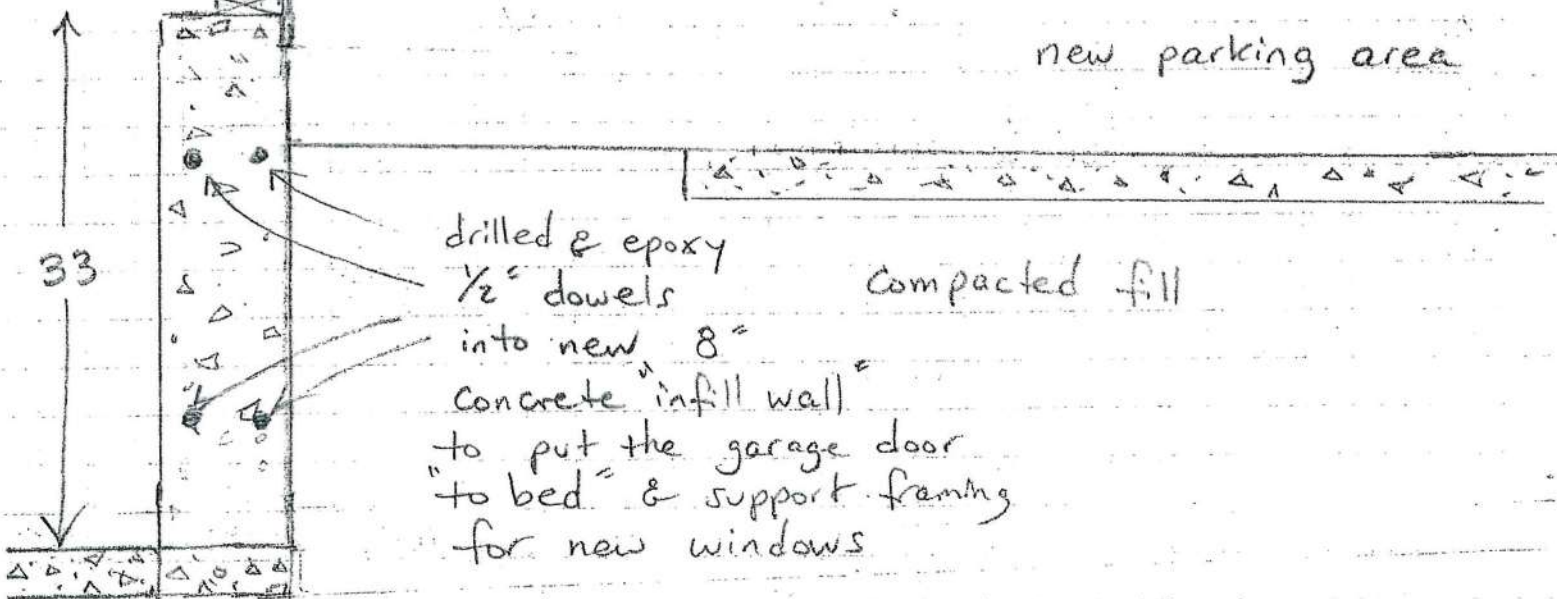 new parking area
33
drilled & epoxy
1/2" dowels
into new 8"
concrete "infill wall"
to put the garage door
"to bed" & support framing
for new windows
compacted fill